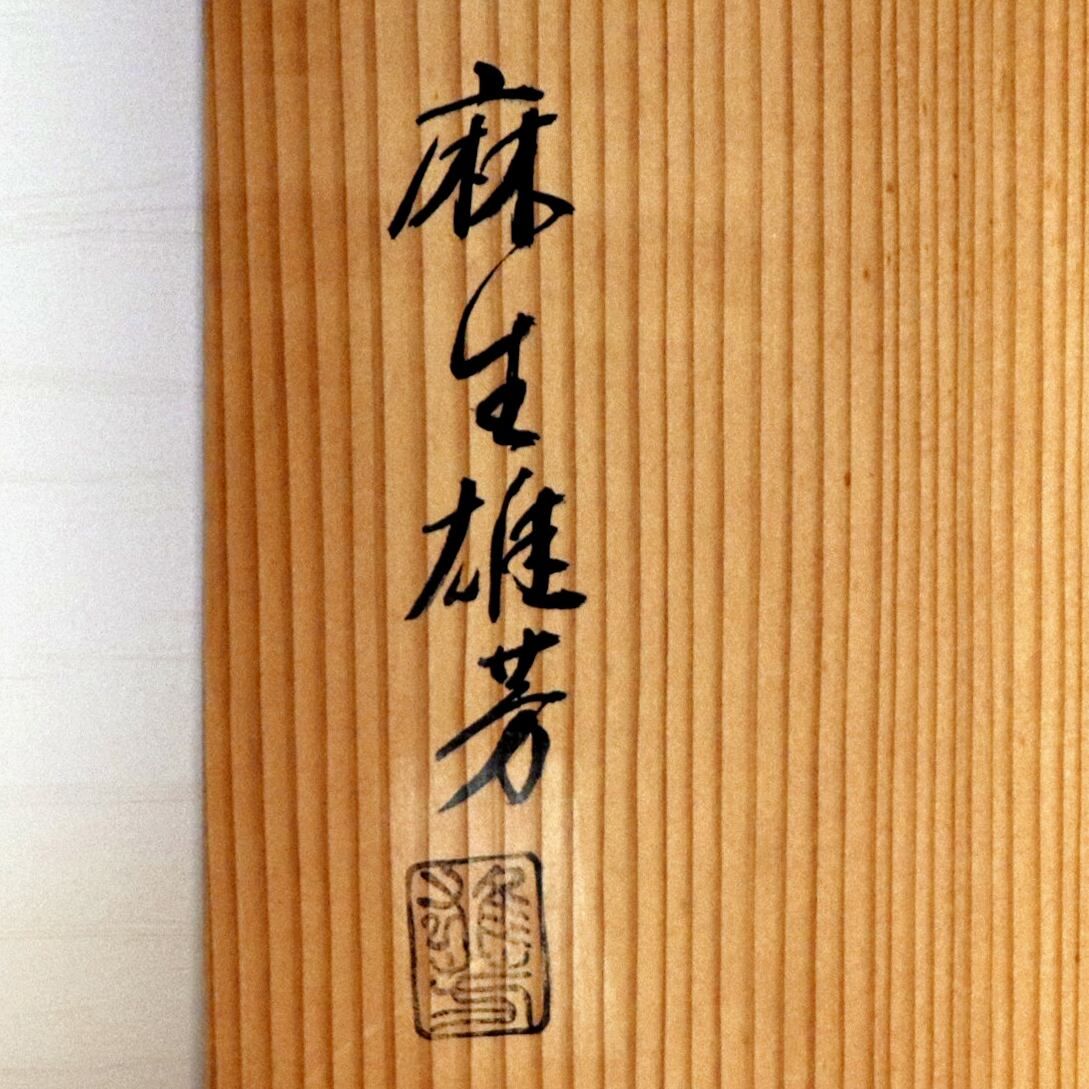 麻生雄芳